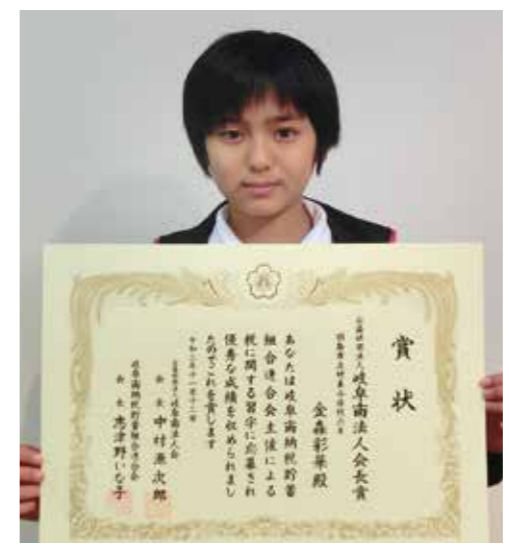 賞状
公益社団法人岐阜南法人会長賞
金森彩華殿
あなたは岐阜南納税貯蓄
組合連合会主催による
税に関する習字に応募され
優秀な成績を収められまし
たのでこれを賞します
令和二年十一月十二日
公益社団法人岐阜南法人会
会長
岐阜南納税貯蓄組合連合会
会長 志津野いな子